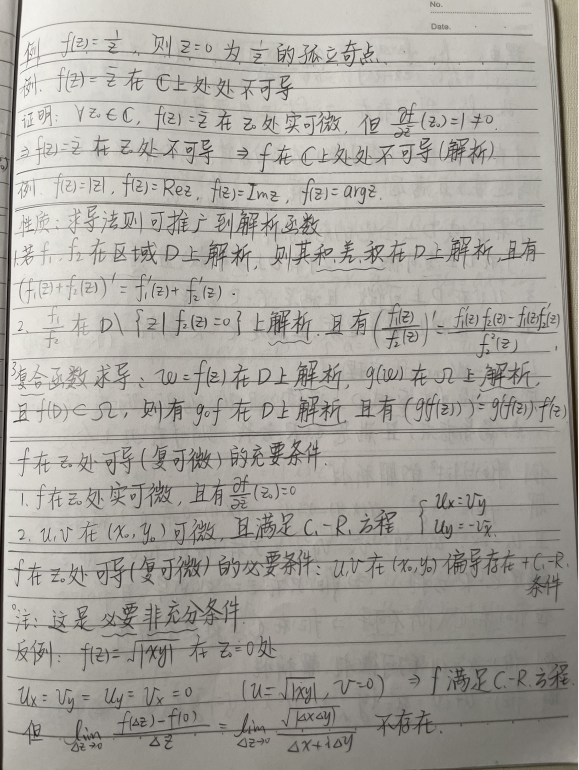 No.
Date.
例 f(z)=1/z, 则 z=0 为 1/z 的孤立奇点.
例. f(z)=z̄ 在 ℂ上处处不可导
证明: ∀z₀∈ℂ, f(z)=z̄ 在 z₀ 处实可微, 但 ∂f/∂z̄ (z₀)=1≠0.
⇒ f(z)=z̄ 在 z₀ 处不可导 ⇒ f 在 ℂ上处处不可导(解析)
例. f(z)=|z|, f(z)=Rez, f(z)=Imz, f(z)=argz.
性质: 求导法则可推广到解析函数
1.若 f₁, f₂ 在区域 D 上解析, 则其和.差.积在 D 上解析,且有
(f₁(z)+f₂(z))'=f₁'(z)+f₂'(z).
2. f₁/f₂ 在 D\{z|f₂(z)=0}上解析. 且有 (f₁(z)/f₂(z))'=(f₁'(z)f₂(z)-f₁(z)f₂'(z))/f₂²(z).
3.复合函数求导: w=f(z) 在 D 上解析, g(w) 在 Ω 上解析,
且 f(D)⊂Ω, 则有 g∘f 在 D 上解析 且有 (g(f(z)))'=g'(f(z))·f'(z)
f 在 z₀ 处可导(复可微)的充要条件.
1. f 在 z₀ 处实可微, 且有 ∂f/∂z̄ (z₀)=0
2. u,v 在 (x₀,y₀) 可微, 且满足 C.-R. 方程 { uₓ=v_y
u_y=-vₓ.
f 在 z₀ 处可导(复可微)的必要条件: u,v 在 (x₀,y₀) 偏导存在+C.-R.
条件
注: 这是必要非充分条件.
反例: f(z)=√|xy| 在 z₀=0 处
uₓ=v_y=u_y=vₓ=0 (u=√|xy|, v=0) ⇒ f 满足 C.-R. 方程.
但 lim_{Δz→0} (f(Δz)-f(0))/Δz = lim_{Δz→0} √|ΔxΔy|/(Δx+iΔy) 不存在.